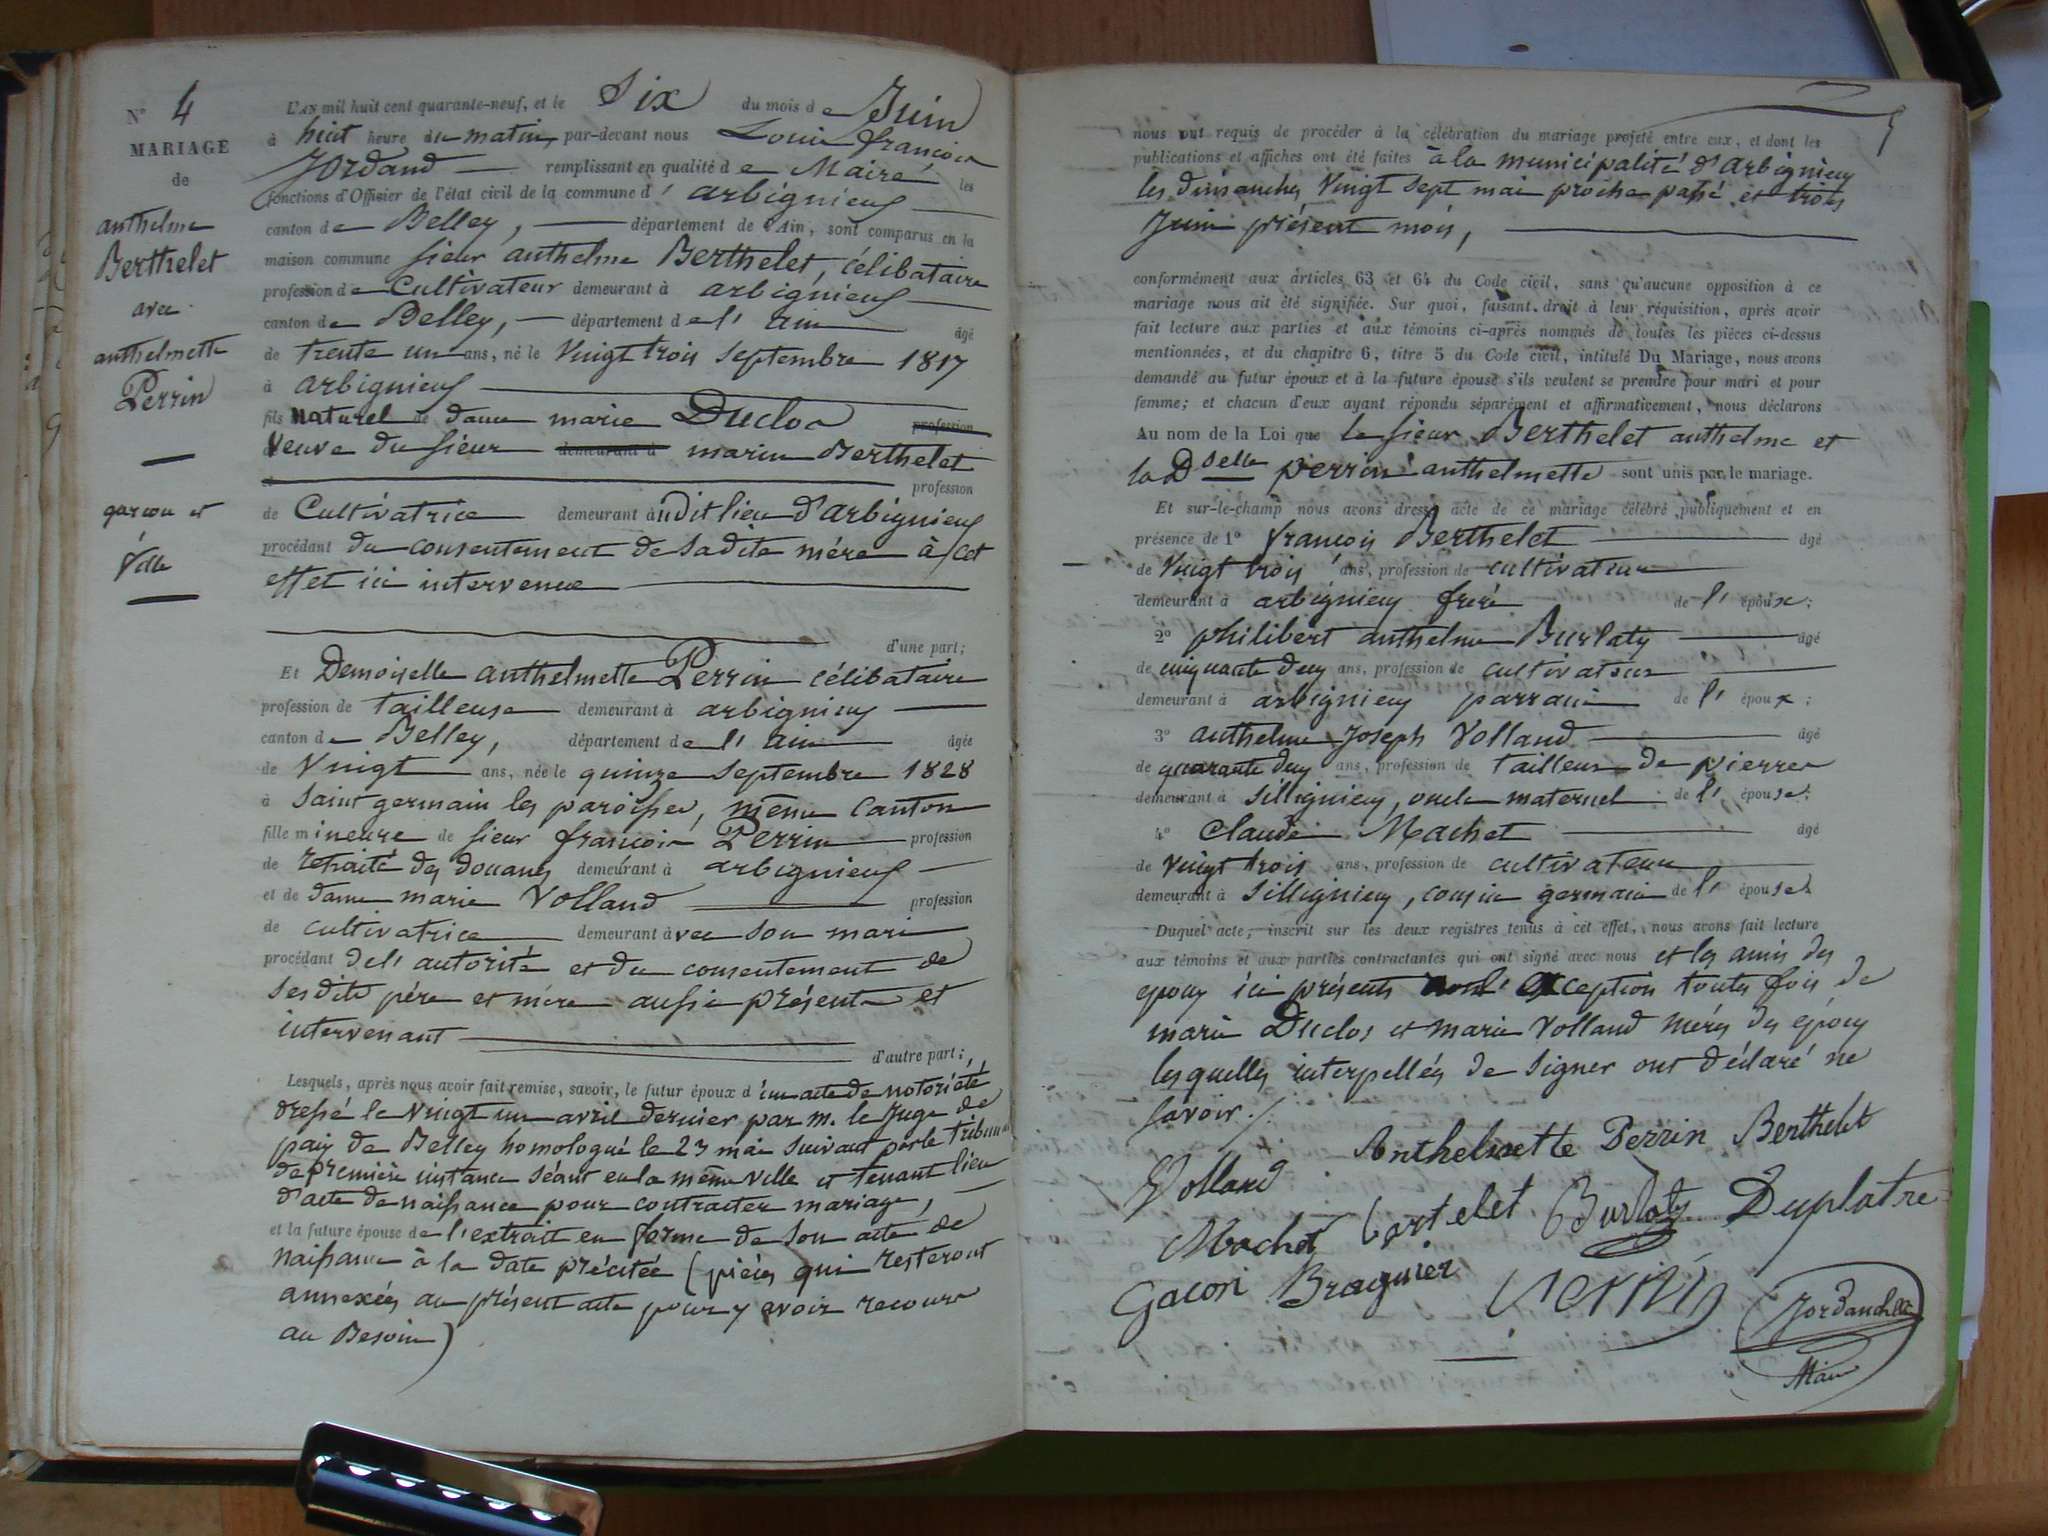 N° 4
MARIAGE
de
anthelme
Berthelet
avec
anthelmette
Perrin
garçon et
fille
L'AN mil huit cent quarante-neuf, et le Six du mois de Juin
à huit heure du matin par-devant nous Louis françois
Jordand remplissant en qualité de Maire les
fonctions d'Officier de l'état civil de la commune d'arbignieu
canton de Belley, département de l'Ain, sont comparus en la
maison commune sieur anthelme Berthelet, célibataire
profession de Cultivateur demeurant à arbignieu
canton de Belley, département de l'ain âgé
de trente un ans, né le Vingt trois septembre 1817
à arbignieu
fils naturel de dame marie Duclos profession
veuve du sieur demeurant à marin Berthelet
profession
de Cultivatrice demeurant audit lieu d'arbignieu
procédant du consentement de sadite mère à cet
effet ici intervenue
d'une part;
Et Demoiselle anthelmette Perrin célibataire
profession de tailleuse demeurant à arbignieu
canton de Belley, département de l'ain âgée
de Vingt ans, née le quinze septembre 1828
à saint germain les paroisses, même canton
fille mineure de sieur françois Perrin profession
de retraité des douanes demeurant à arbignieu
et de dame marie Volland profession
de cultivatrice demeurant avec son mari
procédant de l'autorité et du consentement de
sesdits père et mère aussi présents et
intervenant
d'autre part;
Lesquels, après nous avoir fait remise, savoir, le futur époux d'un acte de notoriété
dressé le vingt un avril dernier par m. le Juge de
paix de Belley homologué le 23 mai suivant par le tribunal
de première instance séant en la même ville et tenant lieu
d'acte de naissance pour contracter mariage,
et la future épouse de l'extrait en forme de son acte de
naissance à la date précitée (pièces qui resteront
annexées au présent acte pour y avoir recours
au Besoin)
nous ont requis de procéder à la célébration du mariage projeté entre eux, et dont les
publications et affiches ont été faites à la municipalité d'arbignieu
les dimanches Vingt sept mai proche passé et trois
Juin présent mois,
conformément aux articles 63 et 64 du Code civil, sans qu'aucune opposition à ce
mariage nous ait été signifiée. Sur quoi, faisant droit à leur réquisition, après avoir
fait lecture aux parties et aux témoins ci-après nommés de toutes les pièces ci-dessus
mentionnées, et du chapitre 6, titre 5 du Code civil, intitulé Du Mariage, nous avons
demandé au futur époux et à la future épouse s'ils veulent se prendre pour mari et pour
femme; et chacun d'eux ayant répondu séparément et affirmativement, nous déclarons
Au nom de la Loi que le sieur Berthelet anthelme et
la Dselle perrin anthelmette sont unis par le mariage.
Et sur-le-champ nous avons dressé acte de ce mariage célébré publiquement et en
présence de 1° françois Berthelet âgé
de Vingt trois ans, profession de cultivateur
demeurant à arbignieu frère de l'époux;
2° philibert anthelme Burlaty âgé
de cinquante deux ans, profession de cultivateur
demeurant à arbignieu parrain de l'époux;
3° anthelme Joseph Volland âgé
de quarante deux ans, profession de tailleur de pierres
demeurant à sillignieu, oncle maternel de l'épouse;
4° Claude Machet âgé
de vingt trois ans, profession de cultivateur
demeurant à sillignieu, cousin germain de l'épouse.
Duquel acte, inscrit sur les deux registres tenus à cet effet, nous avons fait lecture
aux témoins et aux parties contractantes qui ont signé avec nous et les amis des
epoux ici présents exception toutes fois de
marie Duclos et marie Volland mères des époux
lesquelles interpellées de signer ont déclaré ne
savoir ./.
Anthelmette Perrin Berthelet
Volland
Machet bertelet Burlaty Duplatre
Gacon Braguier perrin
Jordand
Maire